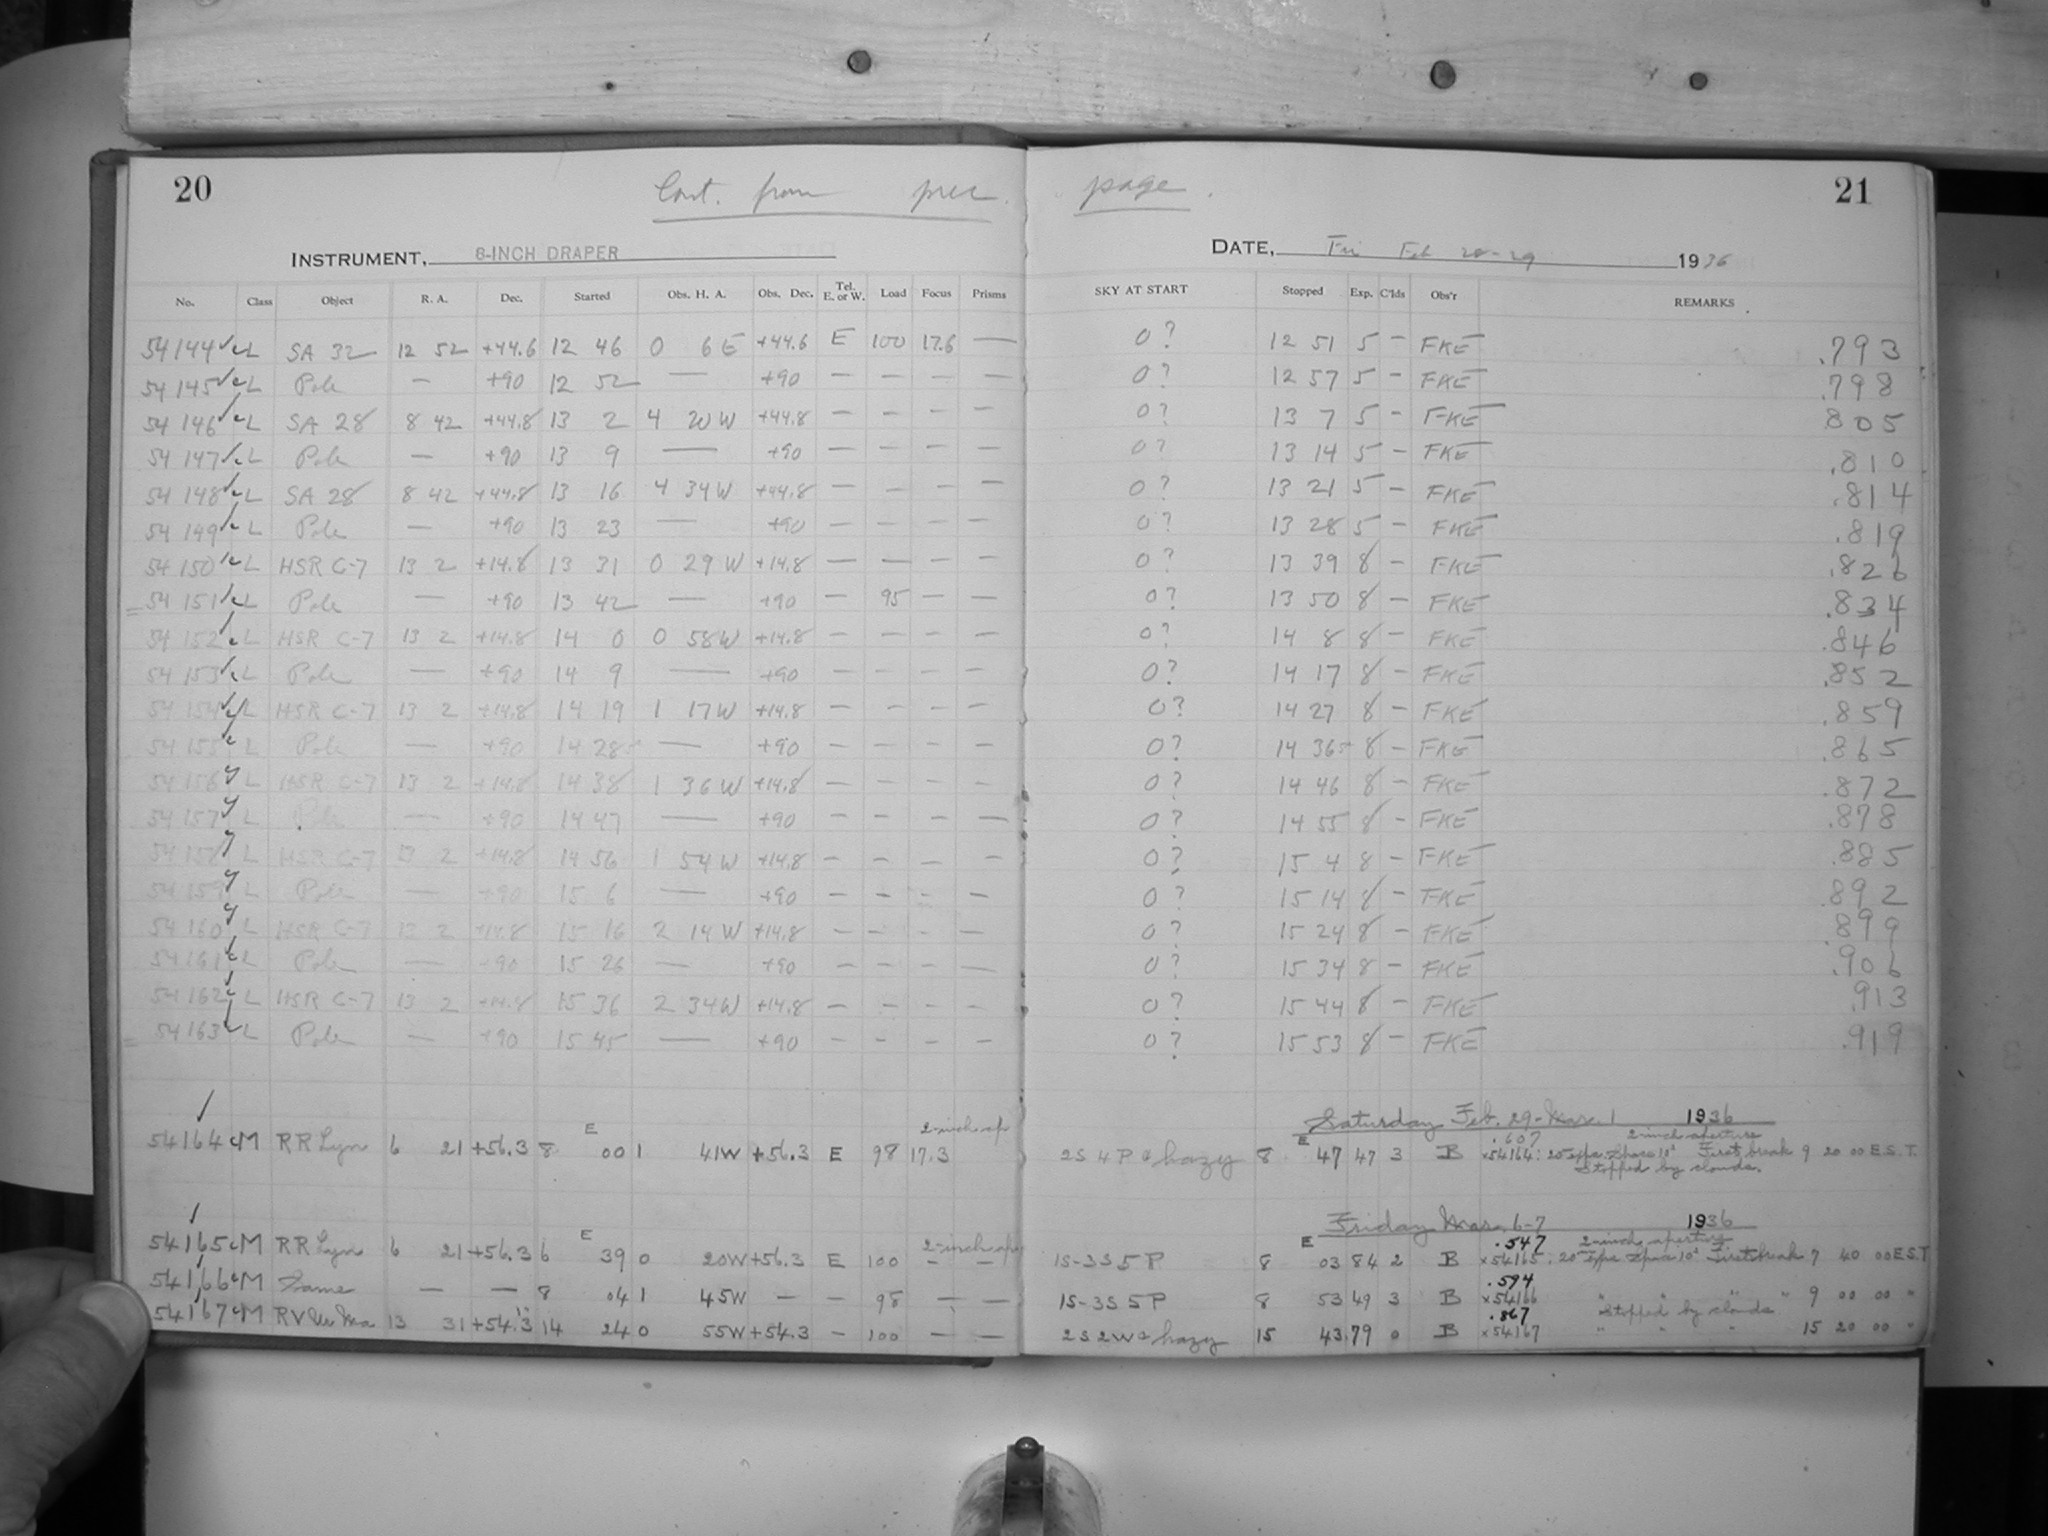 20 Cont. from prec. page. 21
INSTRUMENT, 8-INCH DRAPER DATE, Fri Feb 28-29 1936
No. Class Object R. A. Dec. Started Obs. H. A. Obs. Dec. Tel. E. or W. Load Focus Prisms SKY AT START Stopped Exp. C'lds Obs'r REMARKS
54144 L SA 32 12 52 +44.6 12 46 0 6 E +44.6 E 100 17.6 — 0? 12 51 5 – FKE .793
54145 L Pole — +90 12 52 — +90 — — — — 0? 12 57 5 – FKE .798
54146 L SA 28 8 42 +44.8 13 2 4 20 W +44.8 — — — — 0? 13 7 5 – FKE .805
54147 L Pole — +90 13 9 — +90 — — — — 0? 13 14 5 – FKE .810
54148 L SA 28 8 42 +44.8 13 16 4 34W +44.8 — — — — 0? 13 21 5 – FKE .814
54149 L Pole — +90 13 23 — +90 — — — — 0? 13 28 5 – FKE .819
54150 L HSR C-7 13 2 +14.8 13 31 0 29 W +14.8 — — — — 0? 13 39 8 – FKE .826
54151 L Pole — +90 13 42 — +90 — 95 — — 0? 13 50 8 – FKE .834
54152 L HSR C-7 13 2 +14.8 14 0 0 58W +14.8 — — — — 0? 14 8 8 – FKE .846
54153 L Pole — +90 14 9 — +90 — — — — 0? 14 17 8 – FKE .852
54154 L HSR C-7 13 2 +14.8 14 19 1 17W +14.8 — — — — 0? 14 27 8 – FKE .859
54155 L Pole — +90 14 28 — +90 — — — — 0? 14 36 8 – FKE .865
54156 L HSR C-7 13 2 +14.8 14 38 1 36W +14.8 — — — — 0? 14 46 8 – FKE .872
54157 L Pole — +90 14 47 — +90 — — — — 0? 14 55 8 – FKE .878
54158 L HSR C-7 13 2 +14.8 14 56 1 54W +14.8 — — — — 0? 15 4 8 – FKE .885
54159 L Pole — +90 15 6 — +90 — — — — 0? 15 14 8 – FKE .892
54160 L HSR C-7 13 2 +14.8 15 16 2 14W +14.8 — — — — 0? 15 24 8 – FKE .899
54161 L Pole — +90 15 26 — +90 — — — — 0? 15 34 8 – FKE .906
54162 L HSR C-7 13 2 +14.8 15 36 2 34W +14.8 — — — — 0? 15 44 8 – FKE .913
54163 L Pole — +90 15 45 — +90 — — — — 0? 15 53 8 – FKE .919
Saturday Feb. 29-Mar. 1 1936
2-inch ap .607 2-inch aperture
54164 M RR Lyn 6 21 +56.3 8 E 00 1 41W +56.3 E 98 17.3 2S 4P hazy 8 E 47 47 3 B x54164: 20 Exps. Space 10s First break 9 20 00 E.S.T.
Stopped by clouds.
Friday Mar. 6-7 1936
2-inch ap .547 2-inch aperture
54165 M RR Lyn 6 21 +56.3 6 E 39 0 20W +56.3 E 100 – – 1S-3S 5P 8 E 03 84 2 B x54165: 20 Exps Space 10s First break 7 40 00 E.S.T
.594
54166 M Same — — 8 04 1 45W — — 98 — — 1S-3S 5P 8 53 49 3 B x54166 " " " 9 00 00 "
.867 Stopped by clouds
54167 M RV Ur Ma 13 31 +54.3 14 24 0 55W +54.3 – 100 — — 2S 2W hazy 15 43 79 0 B x54167 " " " 15 20 00 "